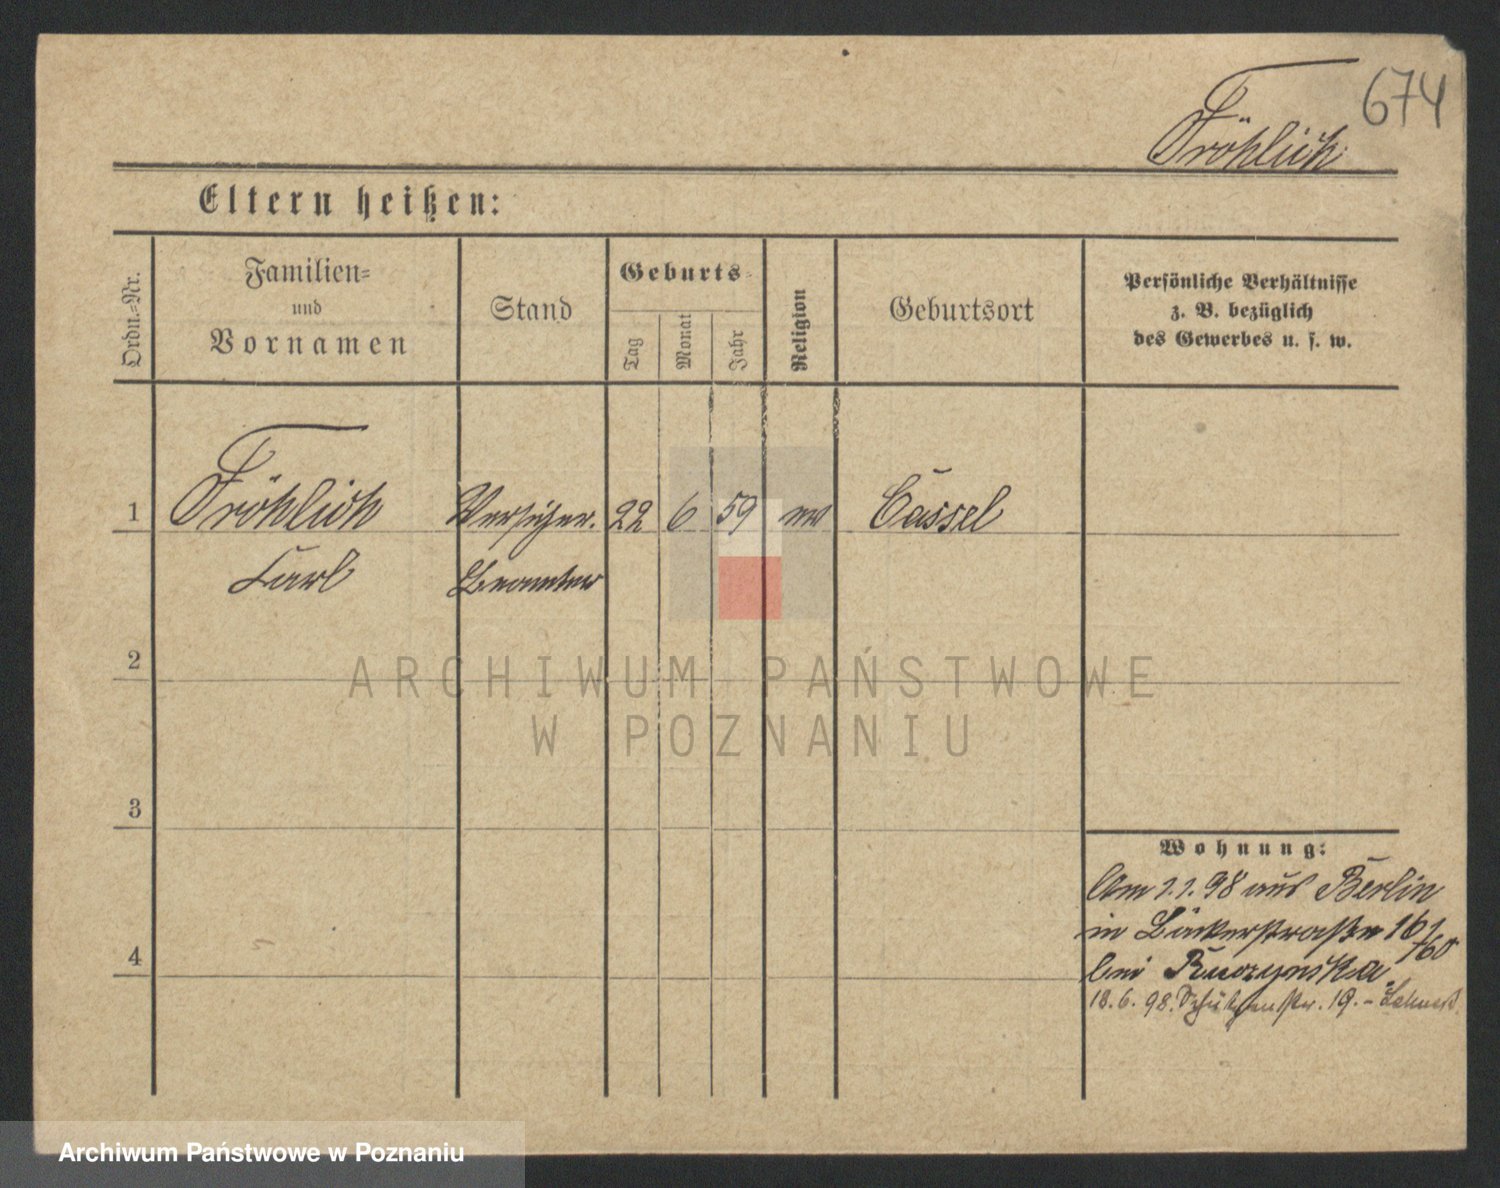 674
Fröhlich
Eltern heißen:
Ordn.-Nr.
Familien-
und
Vornamen
Stand
Geburts-
Tag
Monat
Jahr
Religion
Geburtsort
Persönliche Verhältnisse
z. B. bezüglich
des Gewerbes u. s. w.
1 Fröhlich Versicher. 22 6 59 ev Cassel
Carl Beamter
2
ARCHIWUM PAŃSTWOWE
W POZNANIU
3
4
Wohnung:
Vom 1.1.98 aus Berlin
in Bäckerstraße 16/
bei
18.6.98. Schützenstr. 19. -
Archiwum Państwowe w Poznaniu